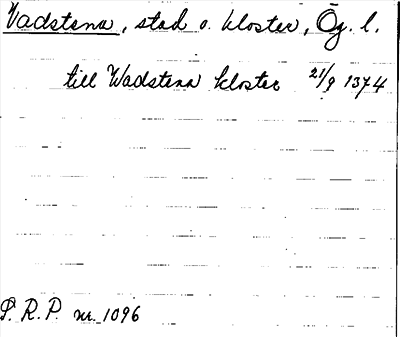 Vadstena, stad o. kloster, Ög. l.
till Wadstena kloster 21/9 1374
S.R.P. nr. 1096